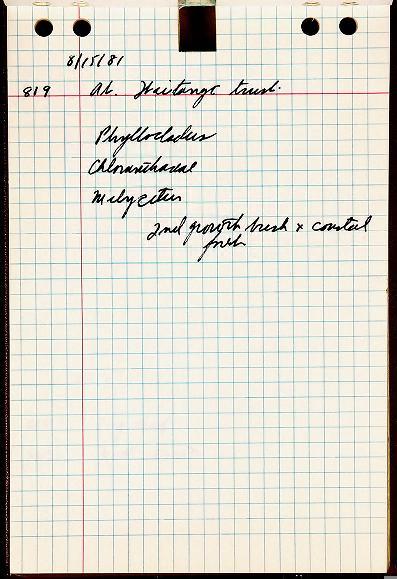 8/15/81
819 At. Waitangi trust.
Phyllocladus
Chloranthaceae
Melycitus
2nd growth bush & coastal